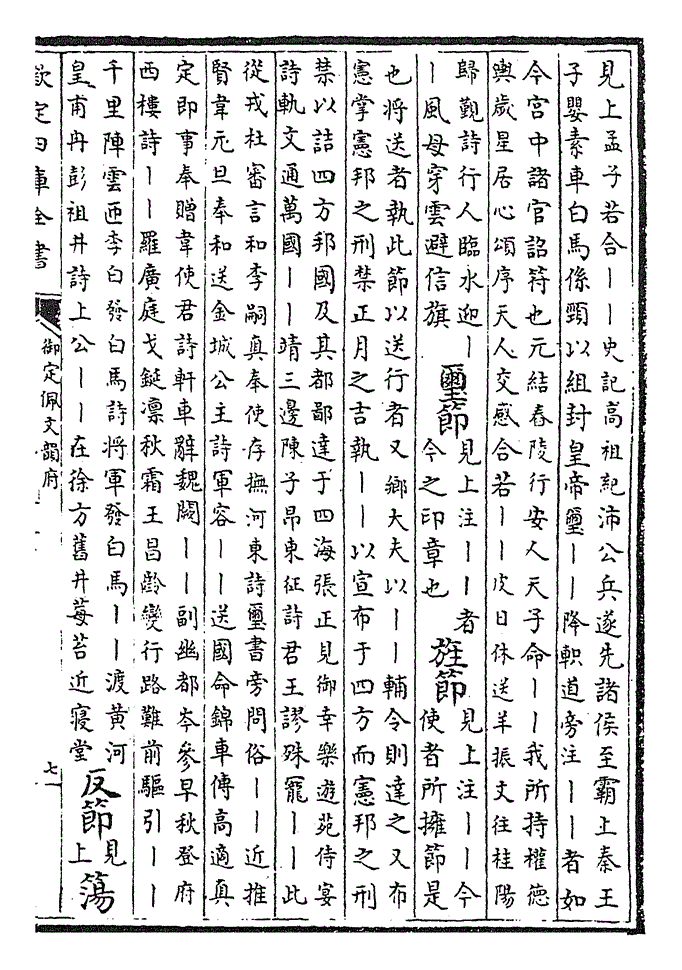 見上孟子若合丨丨史記高祖紀沛公兵遂先諸侯至霸上秦王
子嬰素車白馬係頸以組封皇帝璽丨丨降軹道旁注丨丨者如
今宮中諸官詔符也元結舂陵行安人天子命丨丨我所持權德
輿歲星居心頌序天人交感合若丨丨皮日休送羊振文往桂陽
歸覲詩行人臨水迎丨
丨風母穿雲避信旗
璽節
見上注丨丨者
今之印章也
旌節
見上注丨丨今
使者所擁節是
也將送者執此節以送行者又鄉大夫以丨丨輔令則達之又布
憲掌憲邦之刑禁正月之吉執丨丨以宣布于四方而憲邦之刑
禁以詰四方邦國及其都鄙達于四海張正見御幸樂遊苑侍宴
詩軌文通萬國丨丨靖三邊陳子昂東征詩君王謬殊寵丨丨此
從戎杜審言和李嗣真奉使存撫河東詩璽書旁問俗丨丨近推
賢韋元旦奉和送金城公主詩軍容丨丨送國命錦車傳高適真
定即事奉贈韋使君詩軒車辭魏闕丨丨副幽都岑參早秋登府
西樓詩丨丨羅廣庭戈鋋凛秋霜王昌齡變行路難前驅引丨丨
千里陣雲匝李白發白馬詩將軍發白馬丨丨渡黃河
皇甫冉彭祖井詩上公丨丨在徐方舊井莓苔近寢堂
反節
見上
蕩
欽定四庫全書
御定佩文韻府
七一